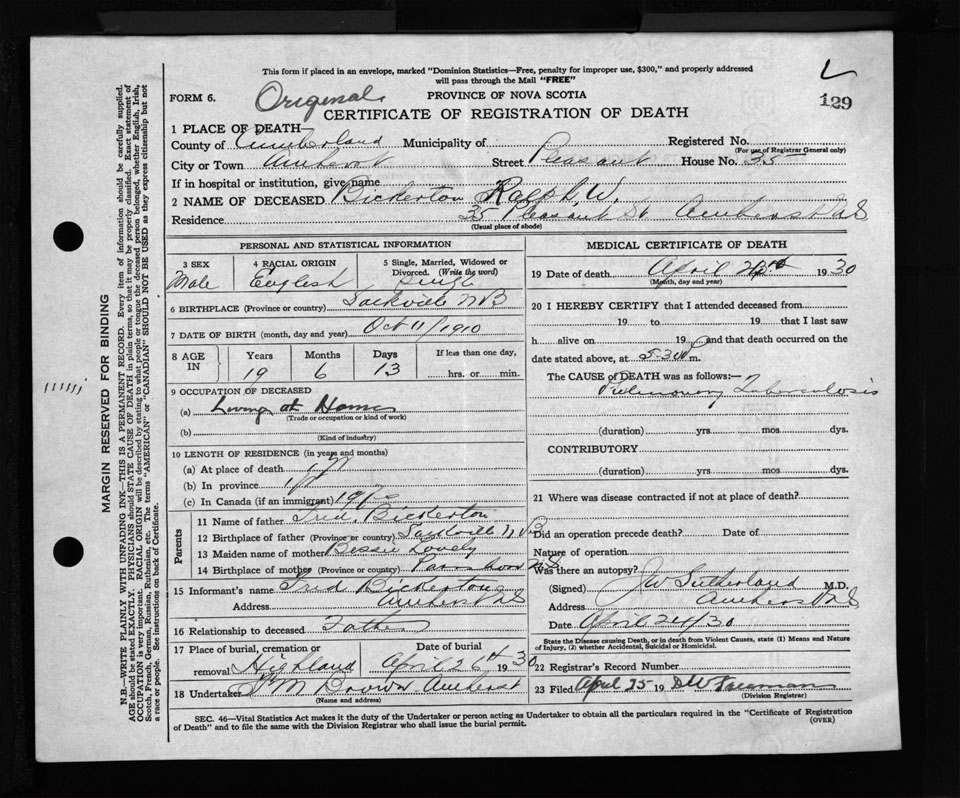 This form if placed in an envelope, marked "Dominion Statistics—Free, penalty for improper use, $300," and properly addressed
will pass through the Mail "FREE"
FORM 6. Original PROVINCE OF NOVA SCOTIA 129
CERTIFICATE OF REGISTRATION OF DEATH
1 PLACE OF DEATH—
County of Cumberland Municipality of Registered No.
(For use of Registrar General only)
City or Town Amherst Street Pleasant House No. 35
If in hospital or institution, give name
2 NAME OF DECEASED Bickerton Ralph W.
Residence 35 Pleasant St Amherst N S
(Usual place of abode)
PERSONAL AND STATISTICAL INFORMATION
3 SEX 4 RACIAL ORIGIN 5 Single, Married, Widowed or
Divorced. (Write the word)
Male English Single
6 BIRTHPLACE (Province or country) Sackville N B
7 DATE OF BIRTH (month, day and year) Oct 11/1910
8 AGE IN Years Months Days If less than one day,
19 6 13 hrs. or min.
9 OCCUPATION OF DECEASED
(a) Living at Home
(Trade or occupation or kind of work)
(b)
(Kind of industry)
10 LENGTH OF RESIDENCE (in years and months)
(a) At place of death
(b) In province
(c) In Canada (if an immigrant)
Parents
11 Name of father Fred. Bickerton
12 Birthplace of father (Province or country) Sackville N. B
13 Maiden name of mother Bessie Lovely
14 Birthplace of mother (Province or country) Parrsboro N S
15 Informant's name Fred Bickerton
Address Amherst N S
16 Relationship to deceased Father
17 Place of burial, cremation or Date of burial
removal Highland April 26th 1930
18 Undertaker Brown Amherst
(Name and address)
MEDICAL CERTIFICATE OF DEATH
19 Date of death April 1930
(Month, day and year)
20 I HEREBY CERTIFY that I attended deceased from
19 to 19 that I last saw
h alive on 19 and that death occurred on the
date stated above, at 5-30 m.
The CAUSE of DEATH was as follows:
Pulmonary Tuberculosis
(duration) yrs mos dys.
CONTRIBUTORY
(duration) yrs mos dys.
21 Where was disease contracted if not at place of death?
Did an operation precede death? Date of
Nature of operation
Was there an autopsy?
(Signed) J W Sutherland M.D.
Address Amherst N S
Date April 24/30
State the Disease causing Death, or in death from Violent Causes, state (1) Means and Nature
of Injury, (2) whether Accidental, Suicidal or Homicidal.
22 Registrar's Record Number
23 Filed April 25 19 Freeman
(Division Registrar)
SEC. 46—Vital Statistics Act makes it the duty of the Undertaker or person acting as Undertaker to obtain all the particulars required in the "Certificate of Registration
of Death" and to file the same with the Division Registrar who shall issue the burial permit. (OVER)
MARGIN RESERVED FOR BINDING
N.B.—WRITE PLAINLY WITH UNFADING INK—THIS IS A PERMANENT RECORD. Every item of information should be carefully supplied.
AGE should be stated EXACTLY. PHYSICIANS should STATE CAUSE OF DEATH in plain terms, so that it may be properly classified. Exact statement of
OCCUPATION is very important. RACIAL ORIGIN will be described by stating to what people or tongue the deceased person belonged, whether English, Irish,
Scotch, French, German, Russian, Ruthenian, etc. The terms "AMERICAN" or "CANADIAN" SHOULD NOT BE USED as they express citizenship but not
a race or people. See instructions on back of Certificate.